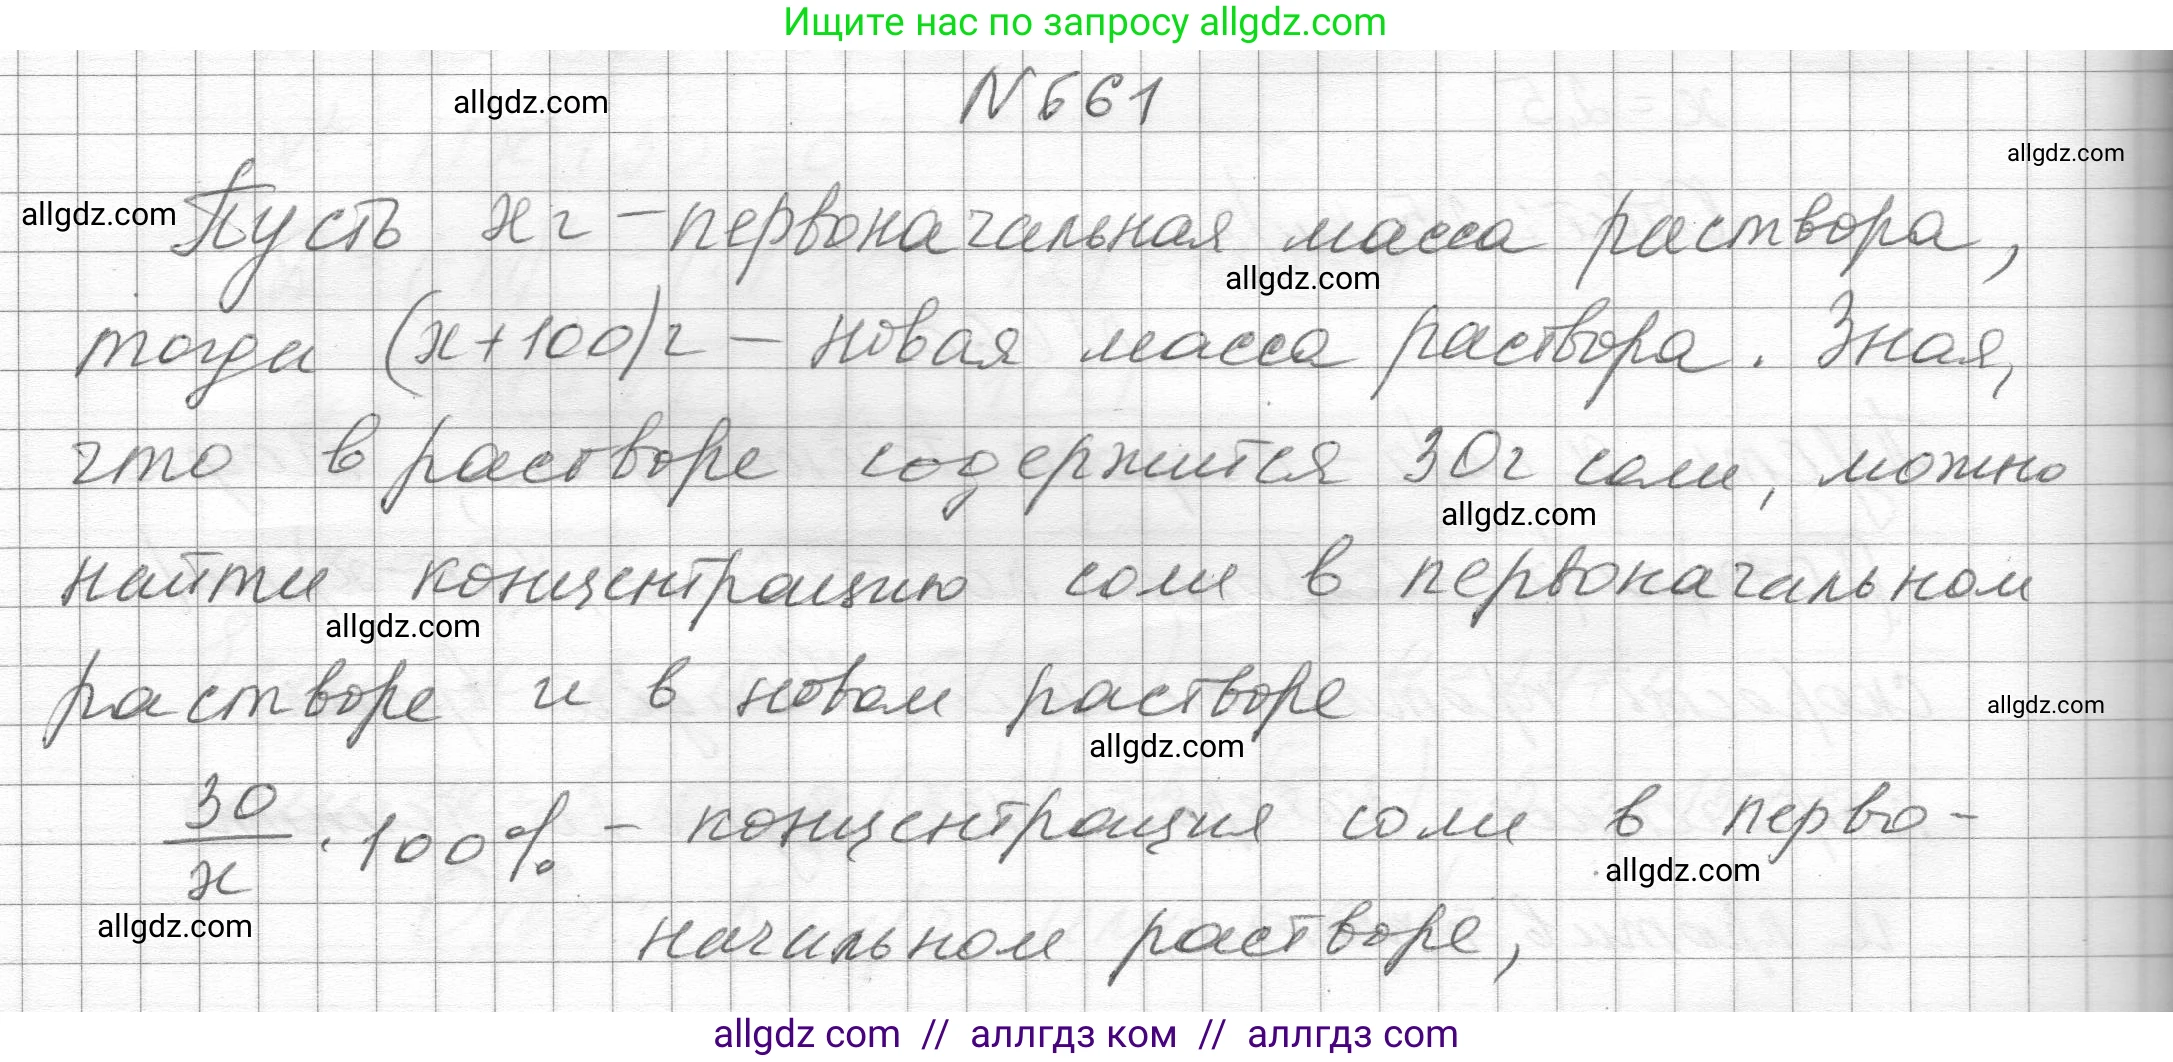 Ищите нас по запросу allgdz.com
allgdz.com N 661
allgdz.com
allgdz.com Пусть x г – первоначальная масса раствора,
allgdz.com
тогда (x+100) г – новая масса раствора. Зная,
что в растворе содержится 30 г соли, можно
allgdz.com
найти концентрацию соли в первоначальном
allgdz.com
растворе и в новом растворе
allgdz.com
allgdz.com
30/x · 100% – концентрация соли в перво-
allgdz.com
allgdz.com
начальном растворе,
allgdz com // аллгдз ком // аллгдз com